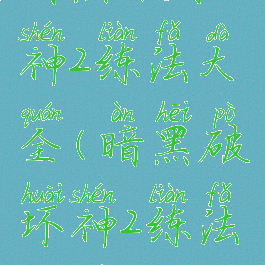 shén liàn fǎ dà
神2练法大
quán àn hēi pò
全(暗黑破
huài shén liàn fǎ
坏神2练法